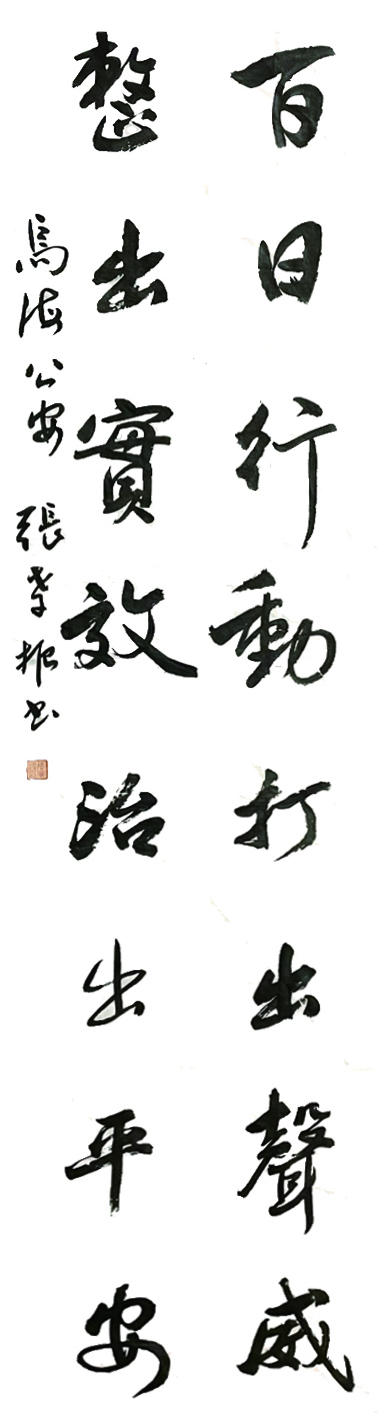 百日行動打出聲威
整出實效治出平安
烏海公安 張孝振書